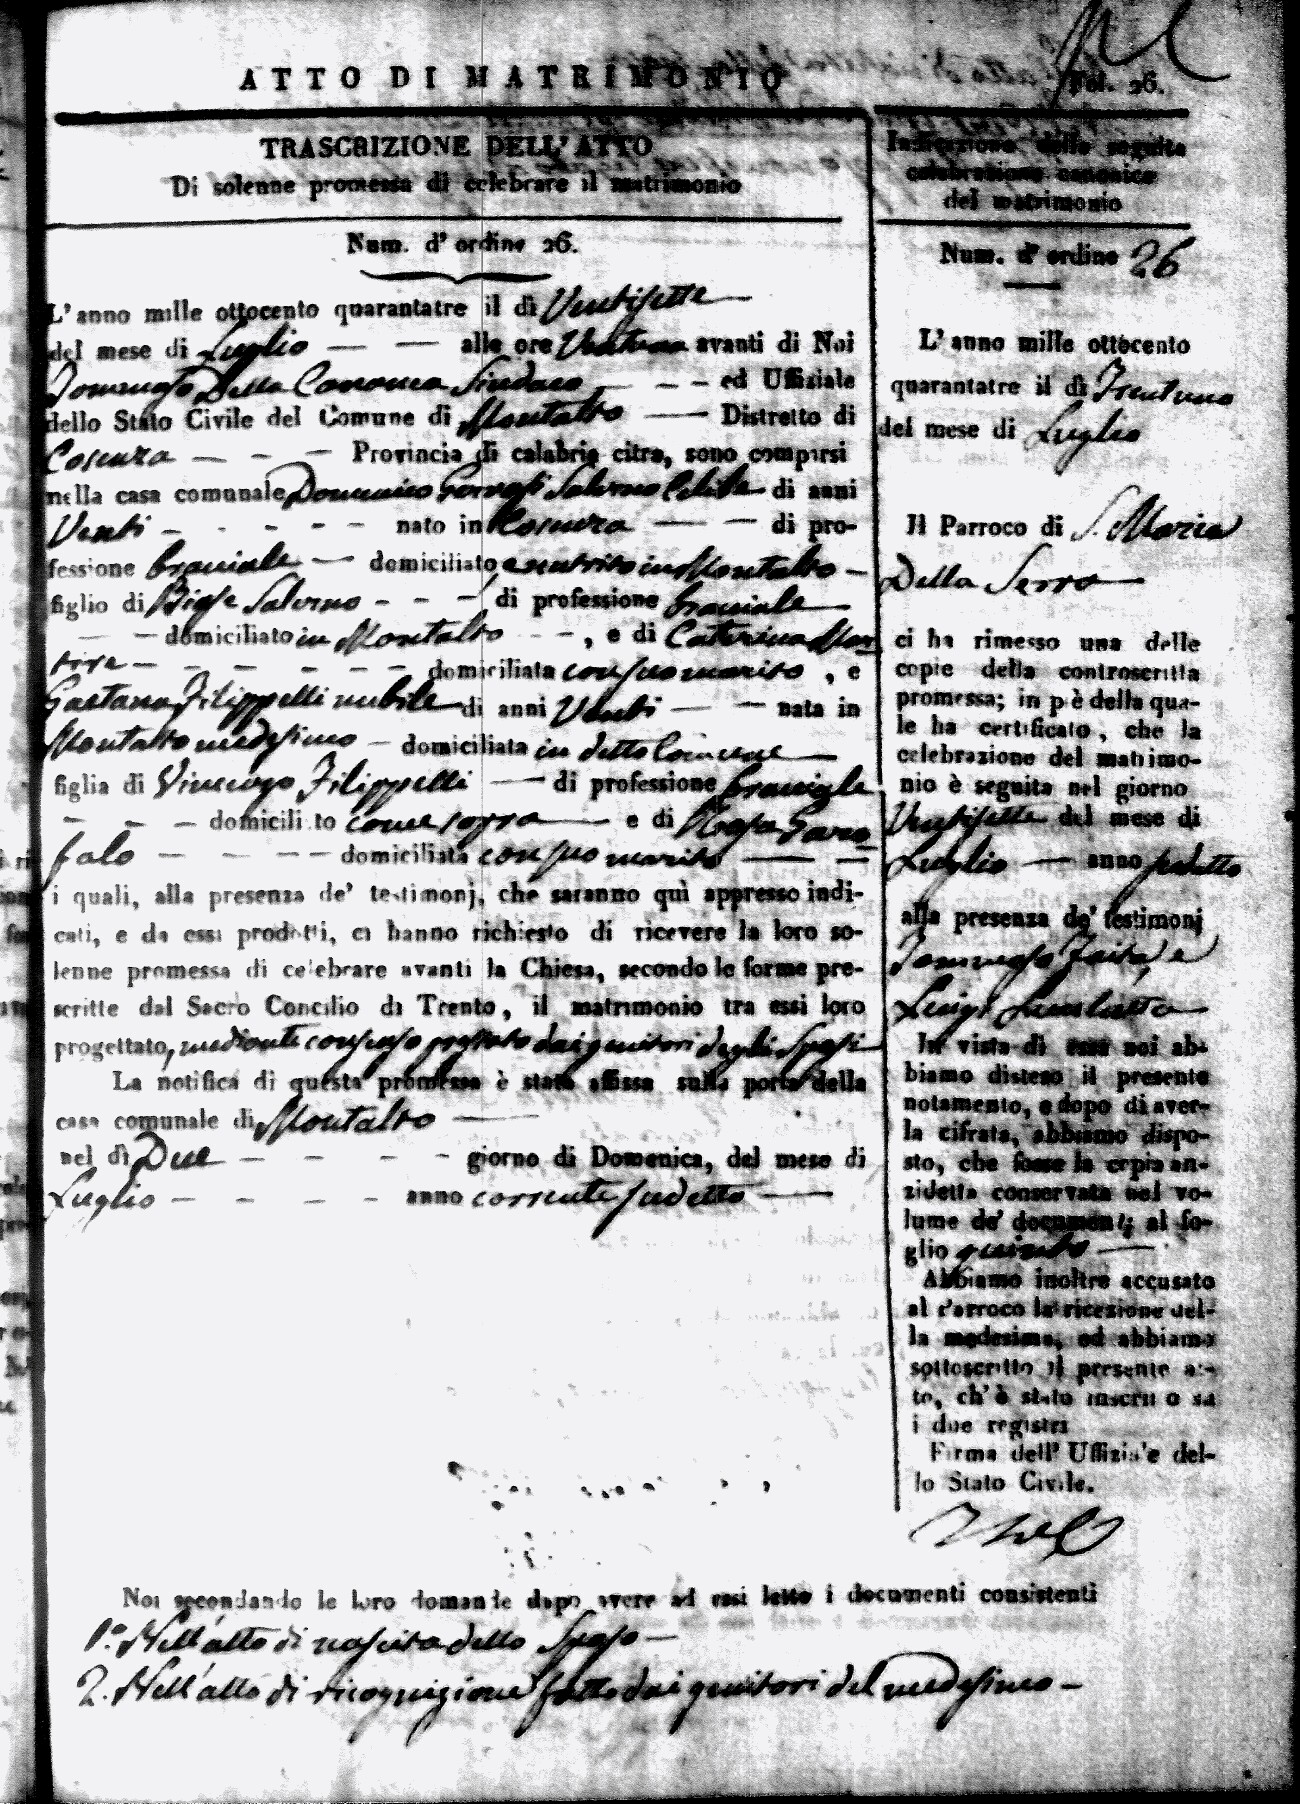 ATTO DI MATRIMONIO
Fol. 26.
TRASCRIZIONE DELL' ATTO
Di solenne promessa di celebrare il matrimonio
Num. d' ordine 26.
L' anno mille ottocento quarantatre il dì Ventisette
del mese di Luglio alle ore Ventuna avanti di Noi
Tommaso Della Cononea Sindaco ed Uffiziale
dello Stato Civile del Comune di Montalto Distretto di
Cosenza Provincia di calabria citra, sono comparsi
nella casa comunale Domenico Salerno Celibe di anni
Venti nato in Cosenza di pro-
fessione braciale domiciliato e nutrito in Montalto
figlio di Biase Salerno di professione braciale
domiciliato in Montalto , e di Caterina
domiciliata con suo marito , e
Gaetana Filippelli nubile di anni Venti nata in
Montalto medesimo domiciliata in detto Comune
figlia di Vincenzo Filippelli di professione braciale
domicili to come sopra e di Rosa Garo
falo domiciliata con suo marito
i quali, alla presenza de' testimonj, che saranno quì appresso indi-
cati, e da essi prodotti, ci hanno richiesto di ricevere la loro so-
lenne promessa di celebrare avanti la Chiesa, secondo le forme pre-
scritte dal Sacro Concilio di Trento, il matrimonio tra essi loro
progettato, mediante consenso prestato dai genitori degli Sposi
La notifica di questa promessa è stata affissa sulla porta della
casa comunale di Montalto
nel dì Due giorno di Domenica, del mese di
Luglio anno corrente sudetto
Indicazione della seguita
celebrazione canonica
del matrimonio
Num. d' ordine 26
L' anno mille ottocento
quarantatre il dì Trentuno
del mese di Luglio
Il Parroco di S. Maria
Della Serra
ci ha rimesso una delle
copie della controscritta
promessa; in piè della qua-
le ha certificato, che la
celebrazione del matrimo-
nio è seguita nel giorno
Ventisette del mese di
Luglio anno sudetto
alla presenza de' testimonj
Tommaso Faità e
Luigi
In vista di essa noi ab-
biamo disteso il presente
notamento, e dopo di aver-
la cifrata, abbiamo dispo-
sto, che fosse la copia an-
zidetta conservata nel vo-
lume de' documenti al fo-
glio quinto
Abbiamo inoltre accusato
al Parroco la ricezione del-
la medesima, ed abbiamo
sottoscritto il presente at-
to, ch' è stato inscritto su
i due registri
Firma dell' Uffiziale del-
lo Stato Civile.
Noi secondando le loro domande dopo avere ad essi letto i documenti consistenti
1.° Nell'atto di nascita dello Sposo
2. Nell'atto di ricognizione fatto dai genitori del medesimo